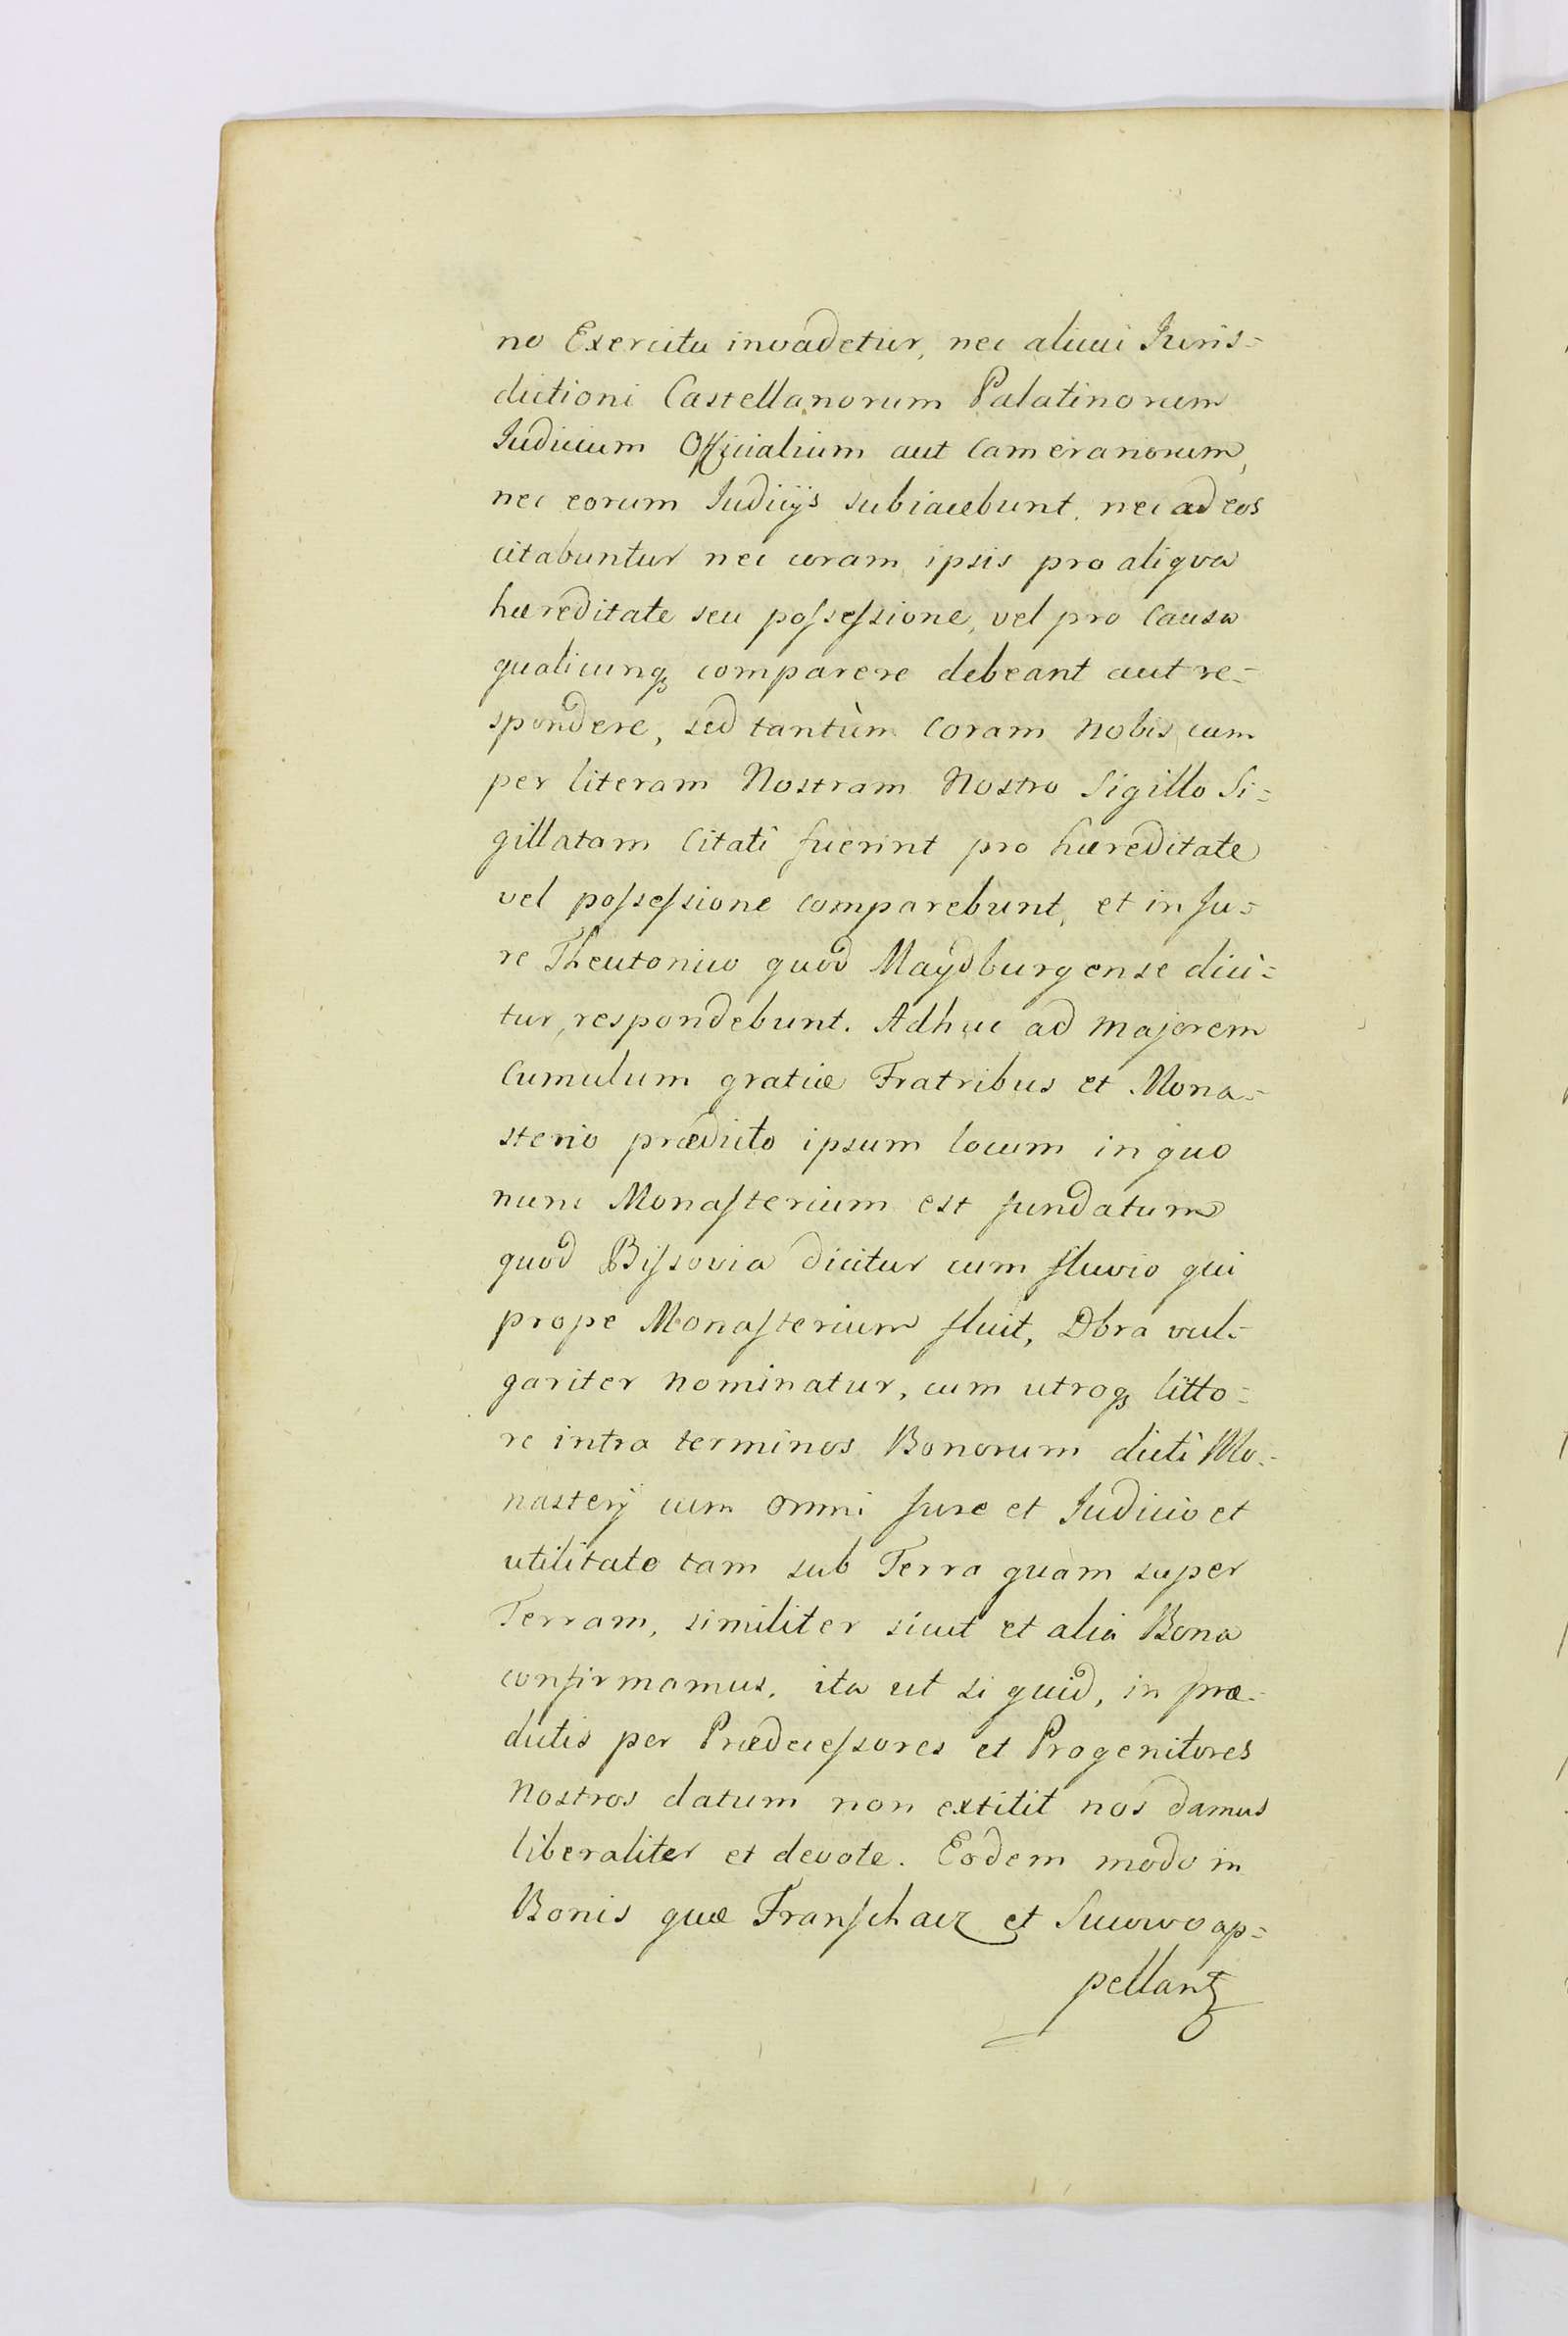 no Exercitu invadetur, nec alicui Juris=
dictioni Castellanorum Palatinorum
Judicium Officialium aut Camerariorum,
nec eorum Judicijs subiacebunt, nec ad eos
citabuntur nec coram ipsis pro aliqva
hæreditate seu poſseſsione, vel pro Causa
qualicunq₃ comparere debeant aut re=
spondere, sed tantùm Coram Nobis cum
per literam Nostram Nostro Sigillo Si=
gillatam Citati fuerint pro hæreditate
vel poſseſsione comparebunt, et in Ju=
re Theutonico quod Maydburgense dici=
tur, respondebunt. Adhuc ad Majorem
Cumulum gratiæ Fratribus et Mona=
sterio prædicto ipsum locum in quo
nunc Monaſterium est fundatum
quod Biſsovia dicitur cum fluvio qui
prope Monaſterium fluit, Dbra vul=
gariter nominatur, cum utroq₃ litto=
re intra terminos Bonorum dicti Mo=
nasterij cum omni Jure et Judicio et
utilitate tam sub Terra quàm super
Terram, similiter sicut et alia Bona
confirmamus, ita ut si quid, in præ=
dictis per Prædeceſsores et Progenitores
Nostros datum non extitit nos damus
liberaliter et devote. Eodem modo in
Bonis quæ Franſchacz et Sucowo ap=
pellant